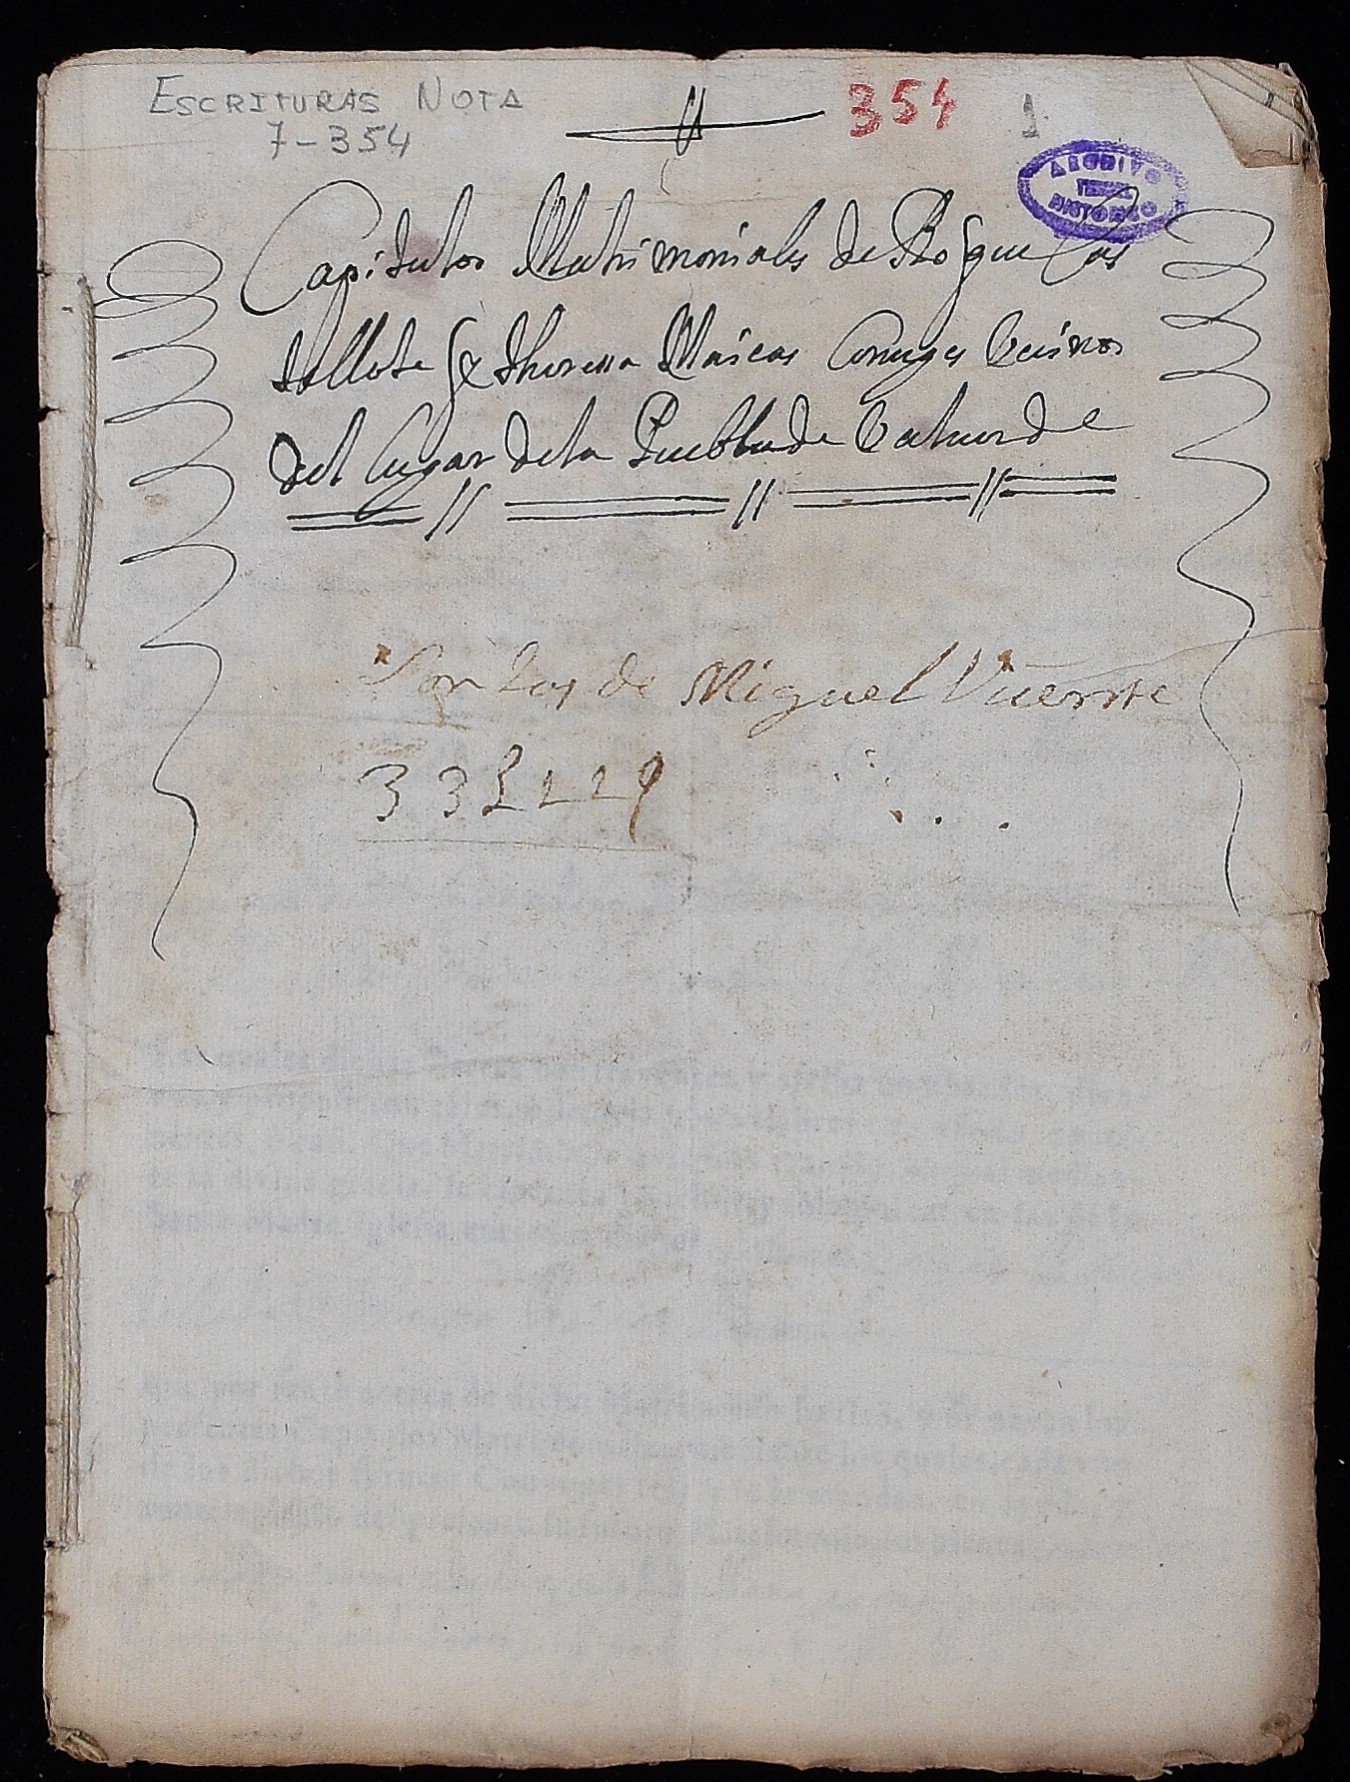 ESCRITURAS NOTA
7-354
354
1
ARCHIVO
HISTORICO
Capitulos Matrimoniales de Roque Cas
tellote y Theresa Maicas Conuges Vecinos
del Lugar de la Puebla de Valuerde
Son los de Miguel Vicente